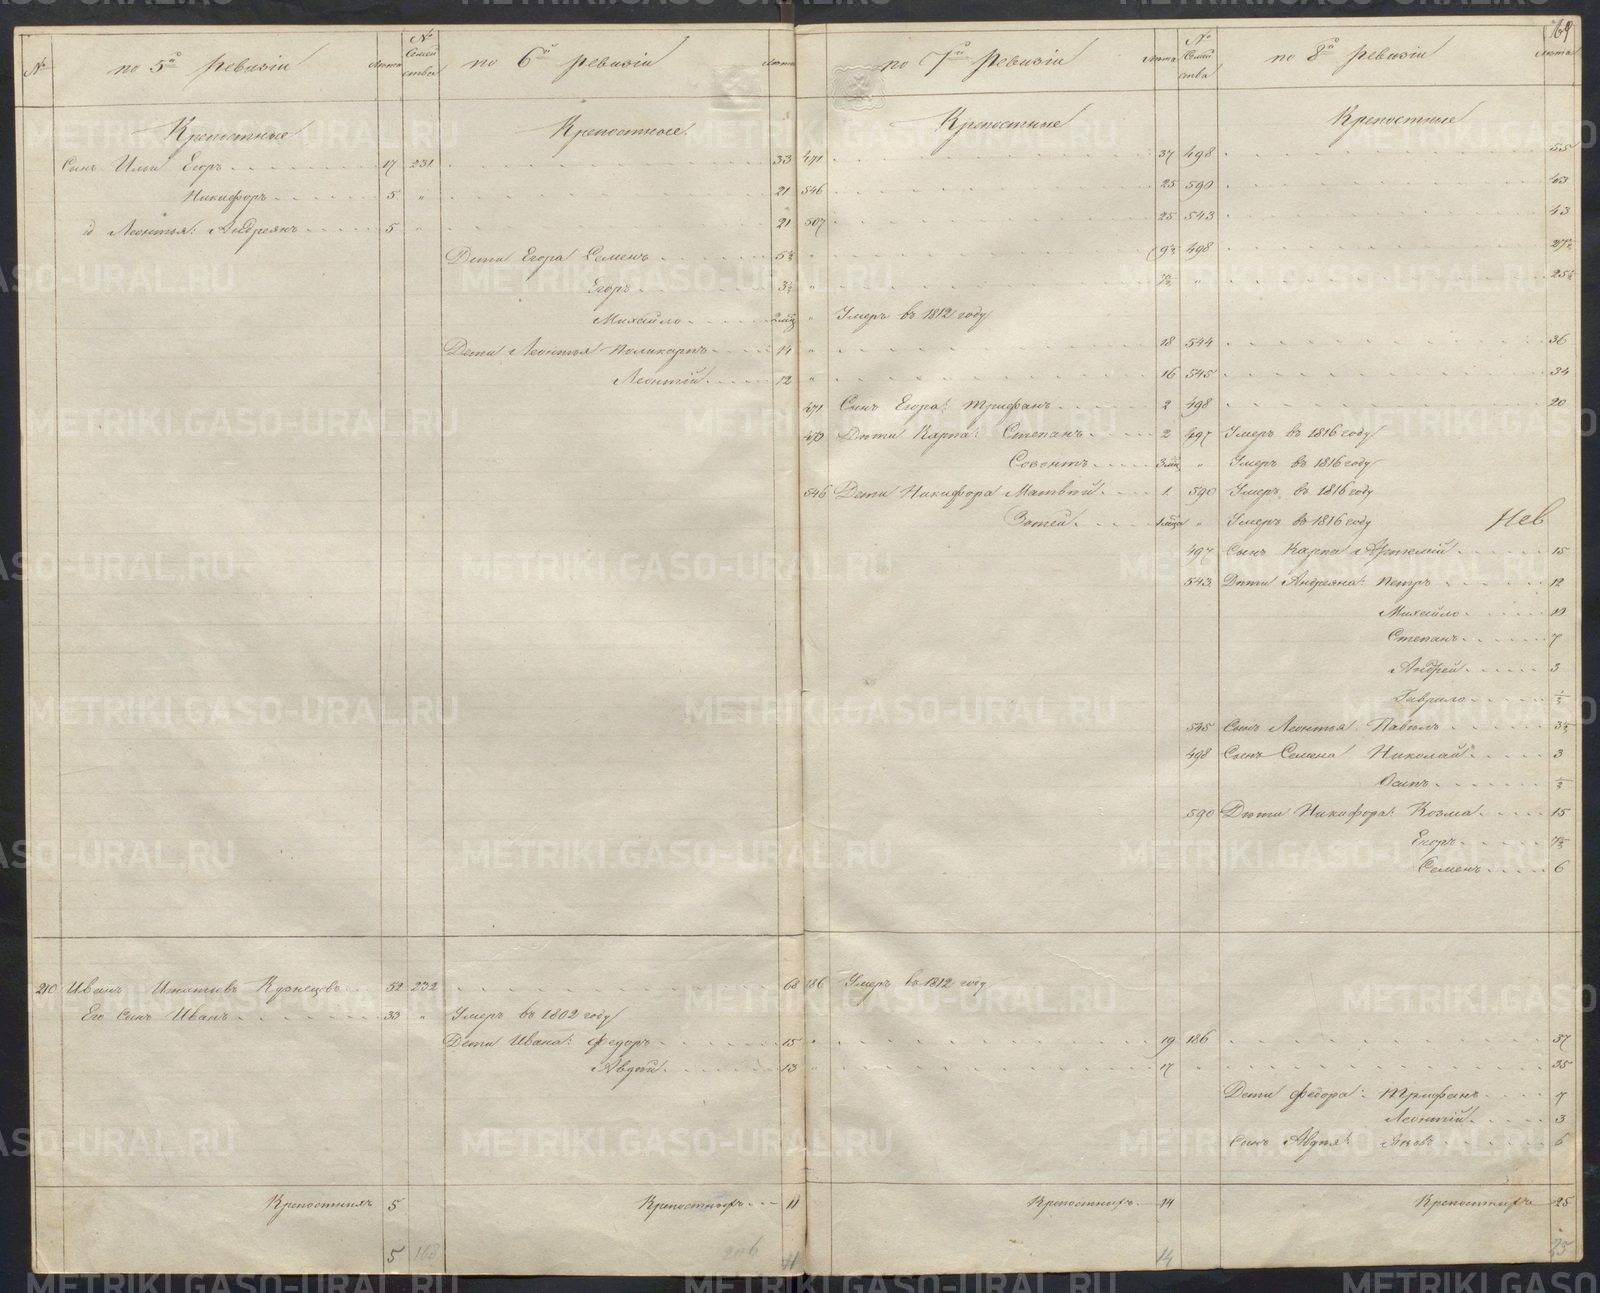 69
№ по 5й ревизіи Лета № Семейства по 6й ревизіи Лета по 7й ревизіи Лета № Семейства по 8й ревизіи Лета
Крепостные Крепостные Крепостные Крепостные
Сынъ Ильи Егоръ 17 231 33 471 37 498 55
Никифоръ 5 " 21 546 25 590 43
Леонтья: Андреянъ 5 " 21 507 25 543 43
Дети Егора Семенъ 5½ " 9½ 498 27½
Егоръ 3½ " 7½ " 25½
Михайло " Умеръ въ 1812 году
Дети Леонтья Поликарпъ 14 " 18 544 36
Леонтій 12 " 16 545 34
471 Сынъ Егора: Трифанъ 2 498 20
Дети Карпа: Степанъ 2 497 Умеръ въ 1816 году
" Умеръ въ 1816 году
546 Дети Никифора Матвей 1 590 Умеръ въ 1816 году
Зотей " Умеръ въ 1816 году Нев
497 Сынъ Карпа 15
543 Дети Андреяна: Петръ 12
Михайло
Степанъ 7
Андрей 3
Гаврило ½
545 Сынъ Леонтья Павелъ 3½
498 Сынъ Семена Николай 3
Осипъ ½
590 Дети Никифора: Козма 15
Егоръ 7½
Семенъ 6
210 Иванъ Игнатьевъ Кузнецовъ 52 232 68 186 Умеръ въ 1812 году
Его Сынъ Иванъ 33 " Умеръ въ 1802 году
Дети Ивана: Федоръ 15 " 19 186 37
Авдей 13 " 17 " 35
Дети Федора: Трифанъ 7
Леонтій 3
Сынъ Авдея: Яковъ 6
Крепостныхъ 5 Крепостныхъ 11 Крепостныхъ 14 Крепостныхъ 25
5 206 11 14 25
METRIKI.GASO-URAL.RU